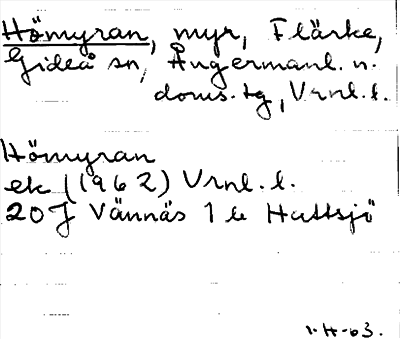 Hömyran, myr, Flärke,
Gideå sn, Ångermanl. n.
doms.tg, Vrnl.l.
Hömyran
ek (1962) Vrnl.l.
20J Vännäs 1 Hattsjö